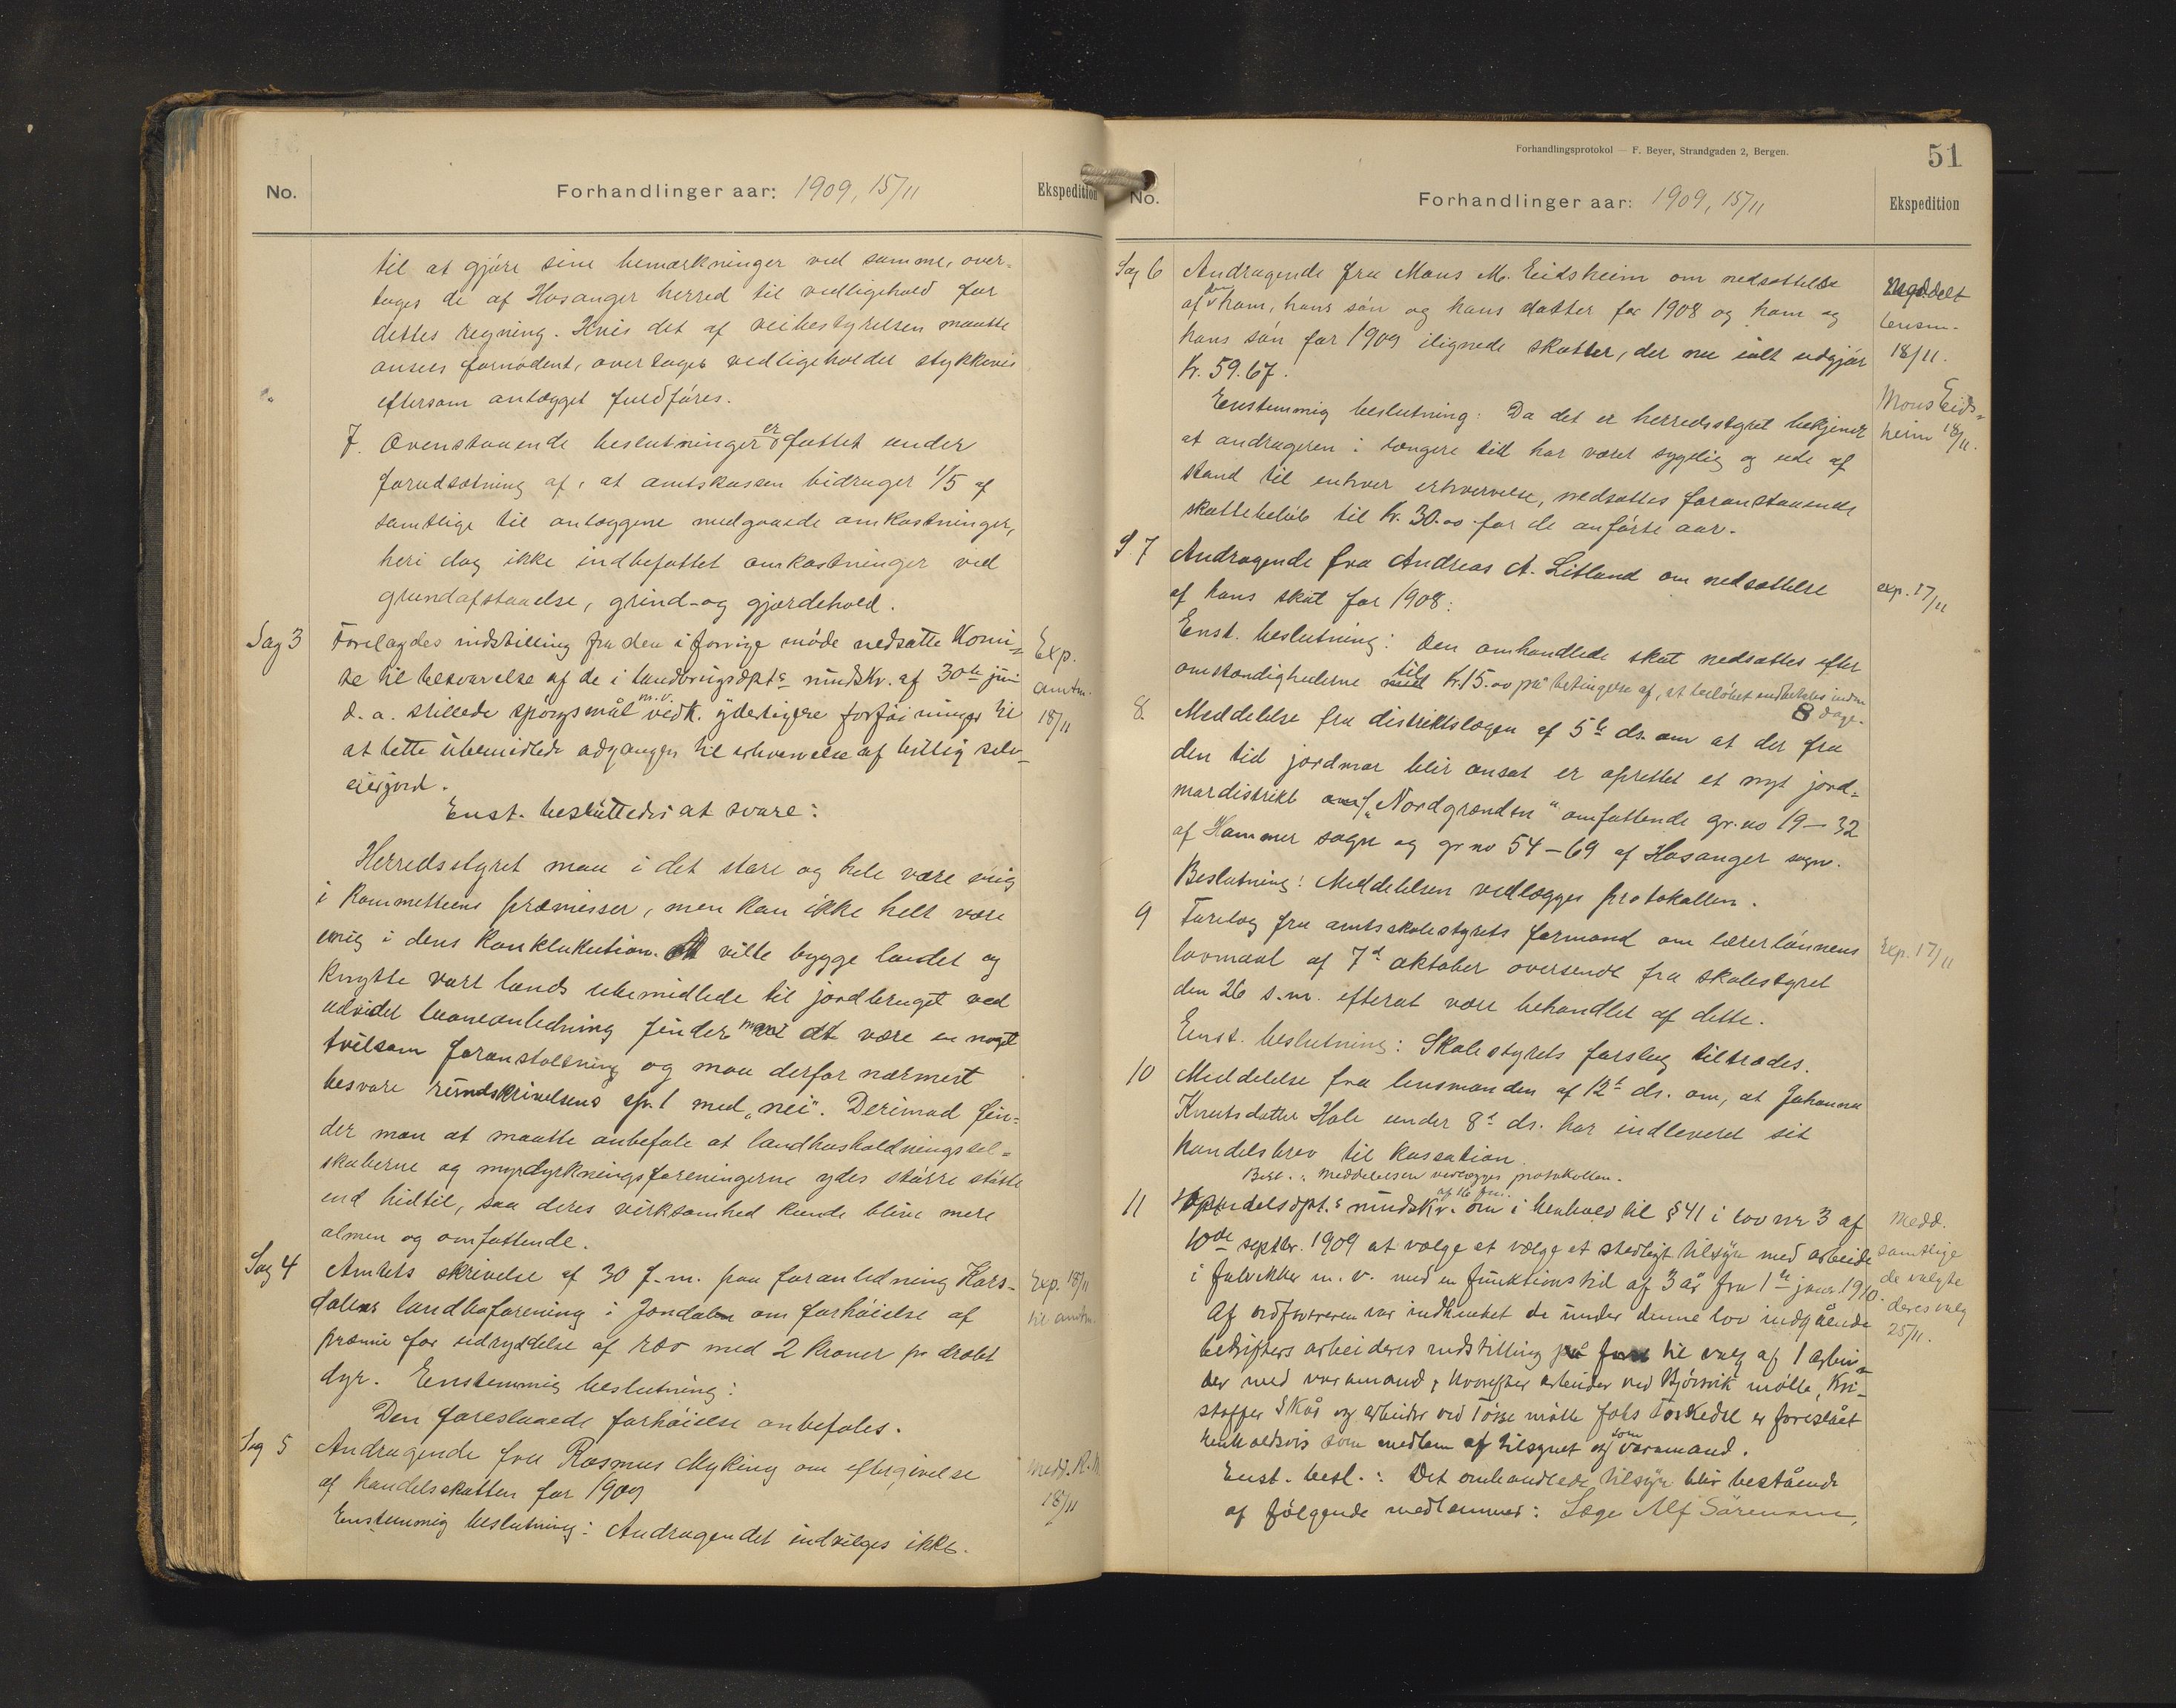 No.
Forhandlinger aar: 1909, 15/11
Ekspedition
til at gjøre sine bemærkninger ved samme, over-
tages de af Hosanger herred til vedligehold for
dettes regning. Hvis det af veibestyrelsen maatte
ansees fornødent, overtages vedligeholdet stykkevis
eftersom anlægget fuldføres.
7. Ovenstaaende beslutninger er fattet under
forudsætning af, at amtskassen bidrager 1/5 af
samtlige til anlæggene medgaaede omkostninger,
heri dog ikke indbefattet omkostninger ved
grundafstaaelse, grind- og gjærdehold.
Sag 3 Forelagdes indstilling fra den i forrige møde nedsatte Komi-
te til besvarelse af de i landbrugsdpts rundskr. af 30te juni
d. a. stillede spørgsmål m.v. vedk. yderligere forføininger til
at lette ubemidlede adgangen til erhvervelse af billig selv-
eierjord.
Exp.
amtm.
18/11
Enst. besluttedes at svare:
Herredsstyret maa i det store og hele være enig
i kommitteens præmisser, men kan ikke helt være
enig i dens konklukution. At ville bygge landet og
knytte vort lands ubemidlede til jordbruget ved
udvidet laaneanledning finder man at være en noget
tvilsom foranstaltning og maa derfor nærmest
besvare rundskrivelsens spr. 1 med "nei". Derimod fin-
der man at maatte anbefale at landhusholdningssel-
skaberne og myrdyrkningsforeningerne ydes større støtte
end hidtil, saa deres virksomhed kunde blive mere
almen og omfattende.
Sag 4 Amtets skrivelse af 30 f.m. paa foranledning Kors-
dalens landboforening i Jondalen om forhøielse af
præmie for udryddelse af ræv med 2 kroner pr dræbt
dyr. Enstemmig beslutning:
Exp. 18/11
til amtm.
Den foreslaaede forhøielse anbefales.
Sag 5 Andragende fra Rasmus Myking om eftergivelse
af handelsskatten for 1909
Enstemmig beslutning: Andragendet indvilges ikke.
Medd. R. M.
18/11
Forhandlingsprotokol — F. Beyer, Strandgaden 2, Bergen.
51
No.
Forhandlinger aar: 1909, 15/11
Ekspedition
Sag 6 Andragende fra Mons M. Eidsheim om nedsættelse
af ham, hans søn og hans datter for 1908 og ham og
hans søn for 1909 ilignede skatter, der nu ialt udgjør
kr. 59.67.
Meddelt
lensm.
18/11.
Enstemmig beslutning: Da det er herredsstyret bekjendt
at andrageren i længere tid har været sygelig og ude af
stand til enhver erhvervelse, nedsættes foranstaaende
skattebeløb til kr. 30.00 for de anførte aar.
Mons Eids-
heim 18/11.
S. 7 Andragende fra Andreas A. Litland om nedsættelse
af hans skat for 1908:
exp. 17/11
Enst. beslutning: Den omhandlede skat nedsættes efter
omstændighederne til kr. 15.00 på betingelse af, at beløbet indbetales inden
8 dage.
8. Meddelelse fra distriktslægen af 5te ds. om at der fra
den tid jordmor blir ansat er oprettet et nyt jord-
mordistrikt "Nordgrænden" omfattende gr.no 19–32
af Hammer sogn og gr no 54–69 af Hosanger sogn.
Beslutning: Meddelelsen vedlægges protokollen.
9 Forelag fra amtsskolestyrets formand om lærerlønnens
lovmaal af 7d oktober oversendt fra skolestyret
den 26 s.m. efterat være behandlet af dette.
Enst. beslutning: Skolestyrets forslag tiltrædes.
Exp. 17/11
10 Meddelelse fra lensmanden af 12t ds. om, at Johanna
Knutsdatter Hole under 8d ds. har indleveret sit
handelsbrev til kassation.
Besl.: Meddelelsen vedlægges protokollen.
11 Handelsdpt.s rundskr. af 16 fm. om i henhold til § 41 i lov nr 3 af
10de septbr. 1909 at vælge et vælge et stedligt tilsyn med arbeide
i fabrikker m. v. med en funktionstid af 3 år fra 1te janr. 1910.
Af ordføreren var indhentet de under denne lov indgående
bedrifters arbeideres indstilling til valg af 1 arbei-
der med varamand, hvorefter arbeider ved Bjørsvik mølle, Kri-
stoffer Skår og arbeider ved Tøsse mølle Johs Toskedal er foreslået
henholdsvis som medlem af tilsynet og som varamand.
Enst. besl.: Det omhandlede tilsyn blir bestående
af følgende medlemmer: Læge Alf Sörensen,
Medd.
samtlige
de valgte
deres valg
25/11.